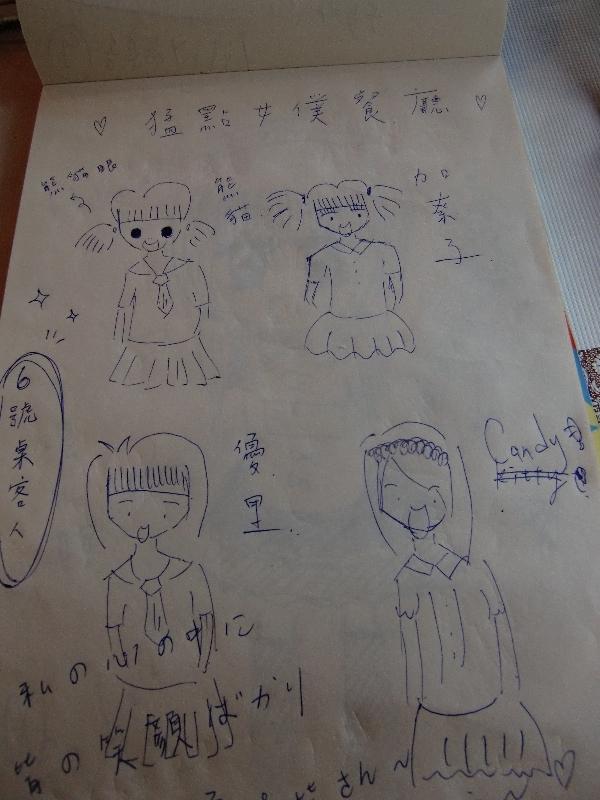 ♡ 猛點女僕餐廳 ♡
熊貓眼
熊貓
加奈子
6號桌客人
優里
Candy
Kitty
私の心の中に
皆の笑顔ばかり
さん~